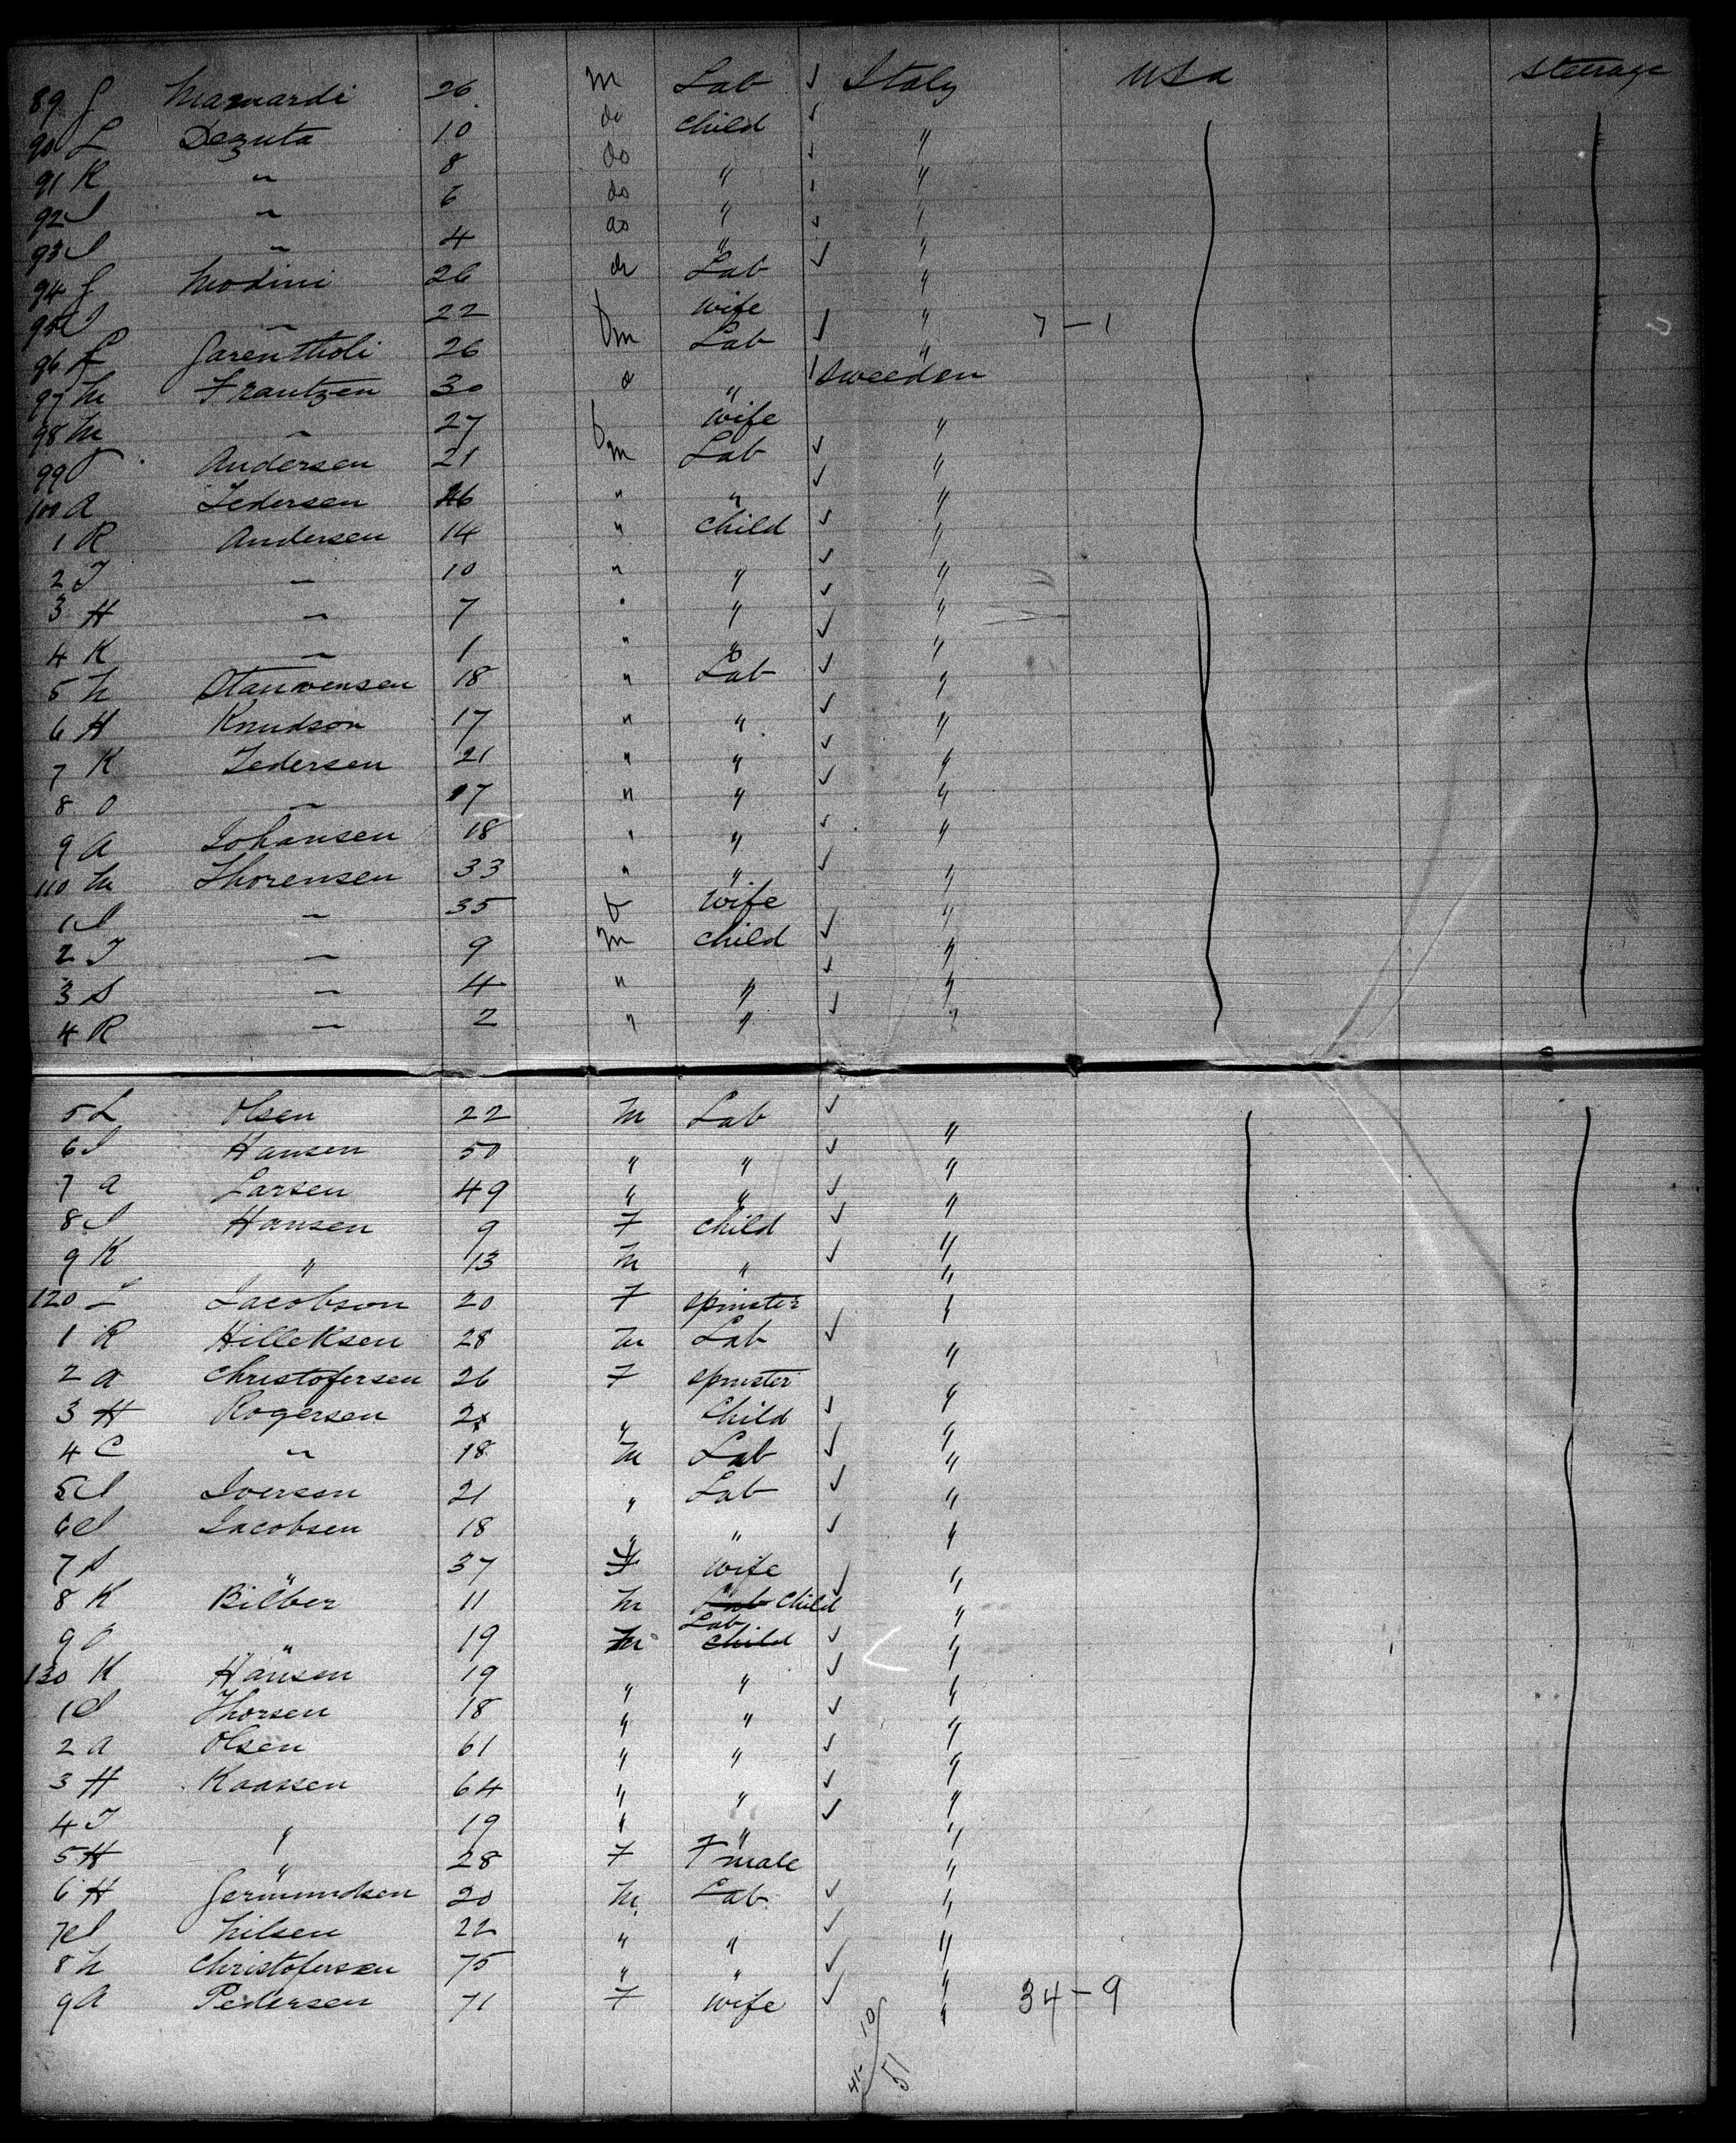 89 J Marnardi 26 m Lab ✓ Italy USA steerage
90 L Dezuta 10 do child ✓ "
91 K " 8 do " ✓ "
92 I " 6 do " "
93 I " 4 do " ✓ "
94 J Modini 26 do Lab ✓ "
95 I " 22 f wife " 7 - 1
96 L Garentholi 26 m Lab ✓ "
97 M Frantzen 30 " Sweeden
98 M " 27 f wife "
99 Andersen 21 m Lab ✓ "
100 A Pedersen 26 " " ✓ "
1 R Andersen 14 " child ✓ "
2 T " 10 " " ✓ "
3 H " 7 " " ✓ "
4 K " 1 " " ✓ "
5 N Stauvensen 18 " Lab ✓ "
6 H Knudson 17 " " ✓ "
7 K Pedersen 21 " " ✓ "
8 O " 17 " " ✓ "
9 A Johansen 18 " " ✓ "
110 M Thorensen 33 " " ✓ "
1 I " 35 f wife "
2 T " 9 m child ✓ "
3 S " 4 " " ✓ "
4 R " 2 " " ✓ "
5 L Olsen 22 M Lab ✓ "
6 I Hansen 50 " " ✓ "
7 a Larsen 49 " " ✓ "
8 I Hansen 9 F child ✓ "
9 K " 13 M " ✓ "
120 L Jacobson 20 F spinster "
1 R Hilleksen 28 M Lab ✓ "
2 a Christofersen 26 F spinster "
3 H Rogersen " Child ✓ "
4 C " 18 M Lab ✓ "
5 I Iversen 21 " Lab ✓ "
6 I Jacobsen 18 " " ✓ "
7 S " 37 F wife "
8 K Bilber 11 M Lab Child ✓ "
9 O " 19 M Lab child ✓ "
130 K Hansen 19 " " ✓ "
1 I Thorsen 18 " " ✓ "
2 a Olsen 61 " " ✓ "
3 H Kaassen 64 " " ✓ "
4 T " 19 " " ✓ "
5 H " 28 F Fmale "
6 H Germundsen 20 M Lab ✓ "
7 I Nilsen 22 " " ✓ "
8 N Christofersen 75 " " ✓ "
9 A Pedersen 71 F wife ✓ " 34 - 9
10
41 51